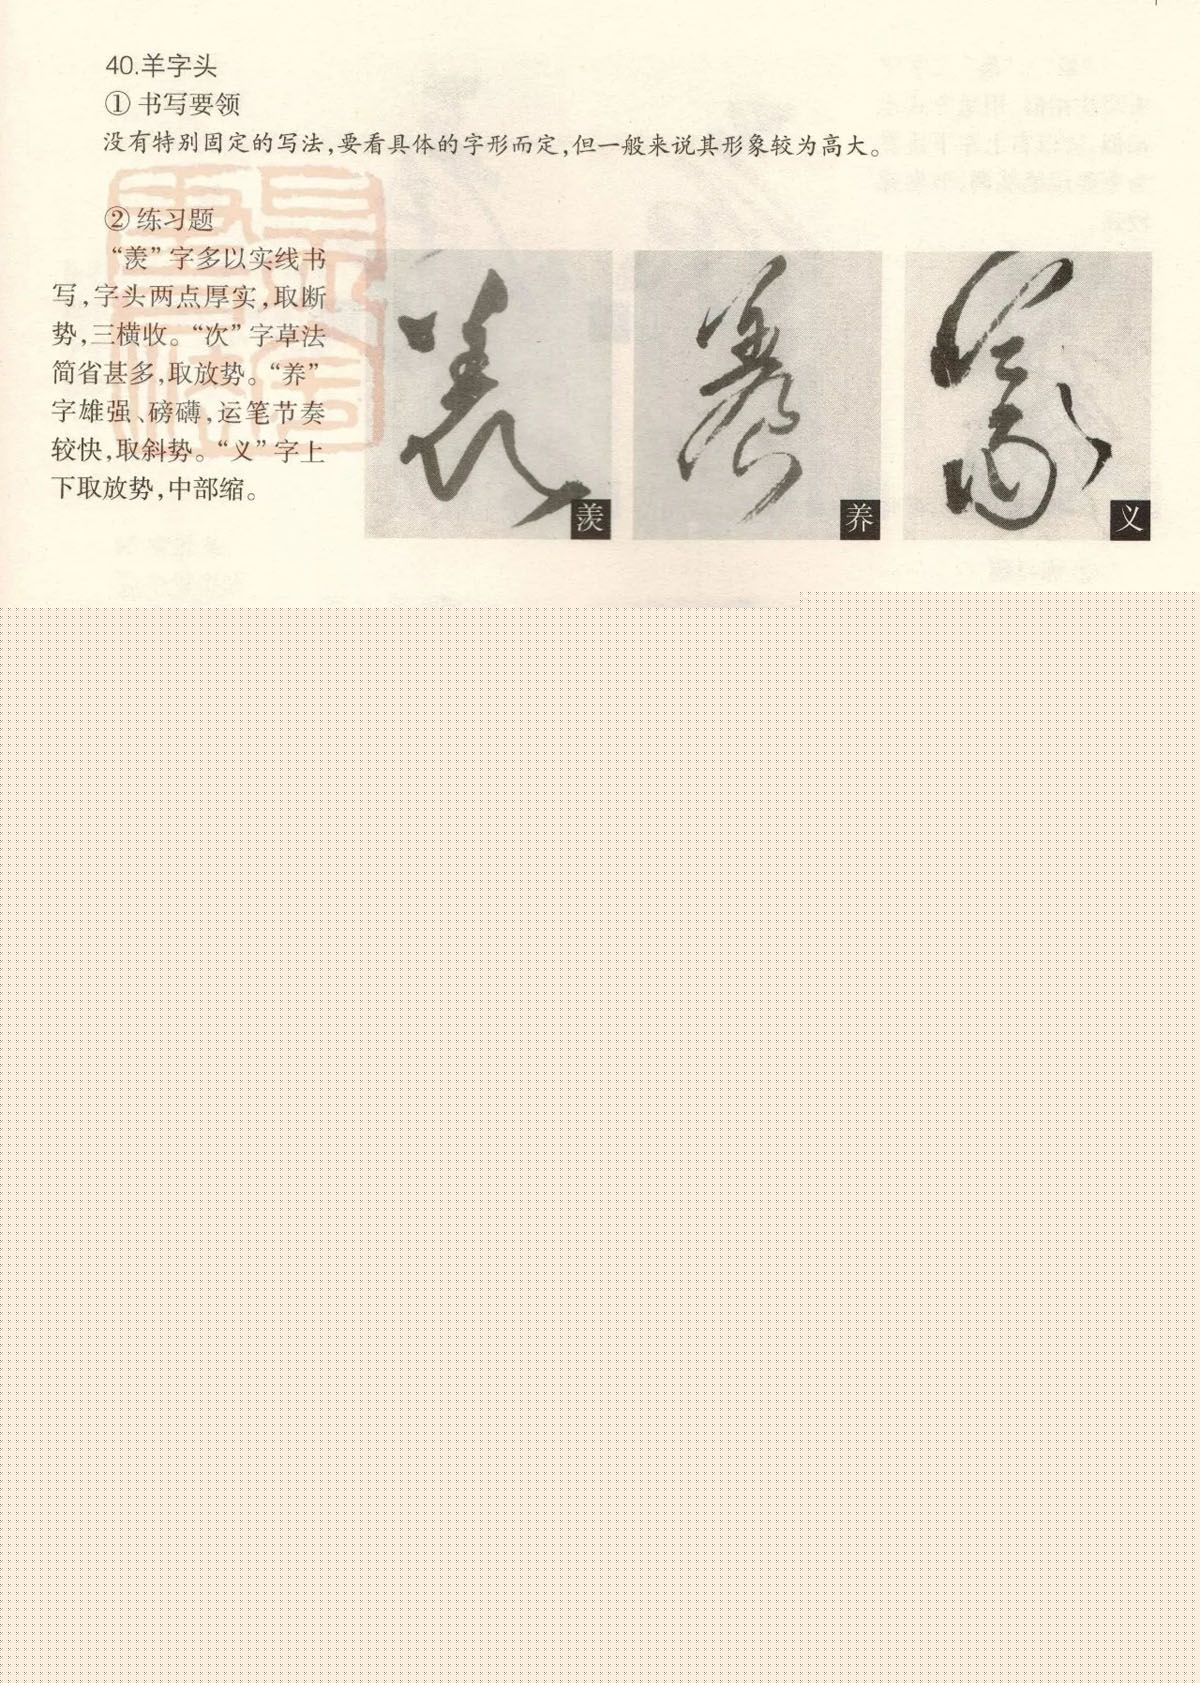 40.羊字头
① 书写要领
没有特别固定的写法,要看具体的字形而定,但一般来说其形象较为高大。
② 练习题
“羡”字多以实线书
写,字头两点厚实,取断
势,三横收。“次”字草法
简省甚多,取放势。“养”
字雄强、磅礴,运笔节奏
较快,取斜势。“义”字上
下取放势,中部缩。
羡
养
义